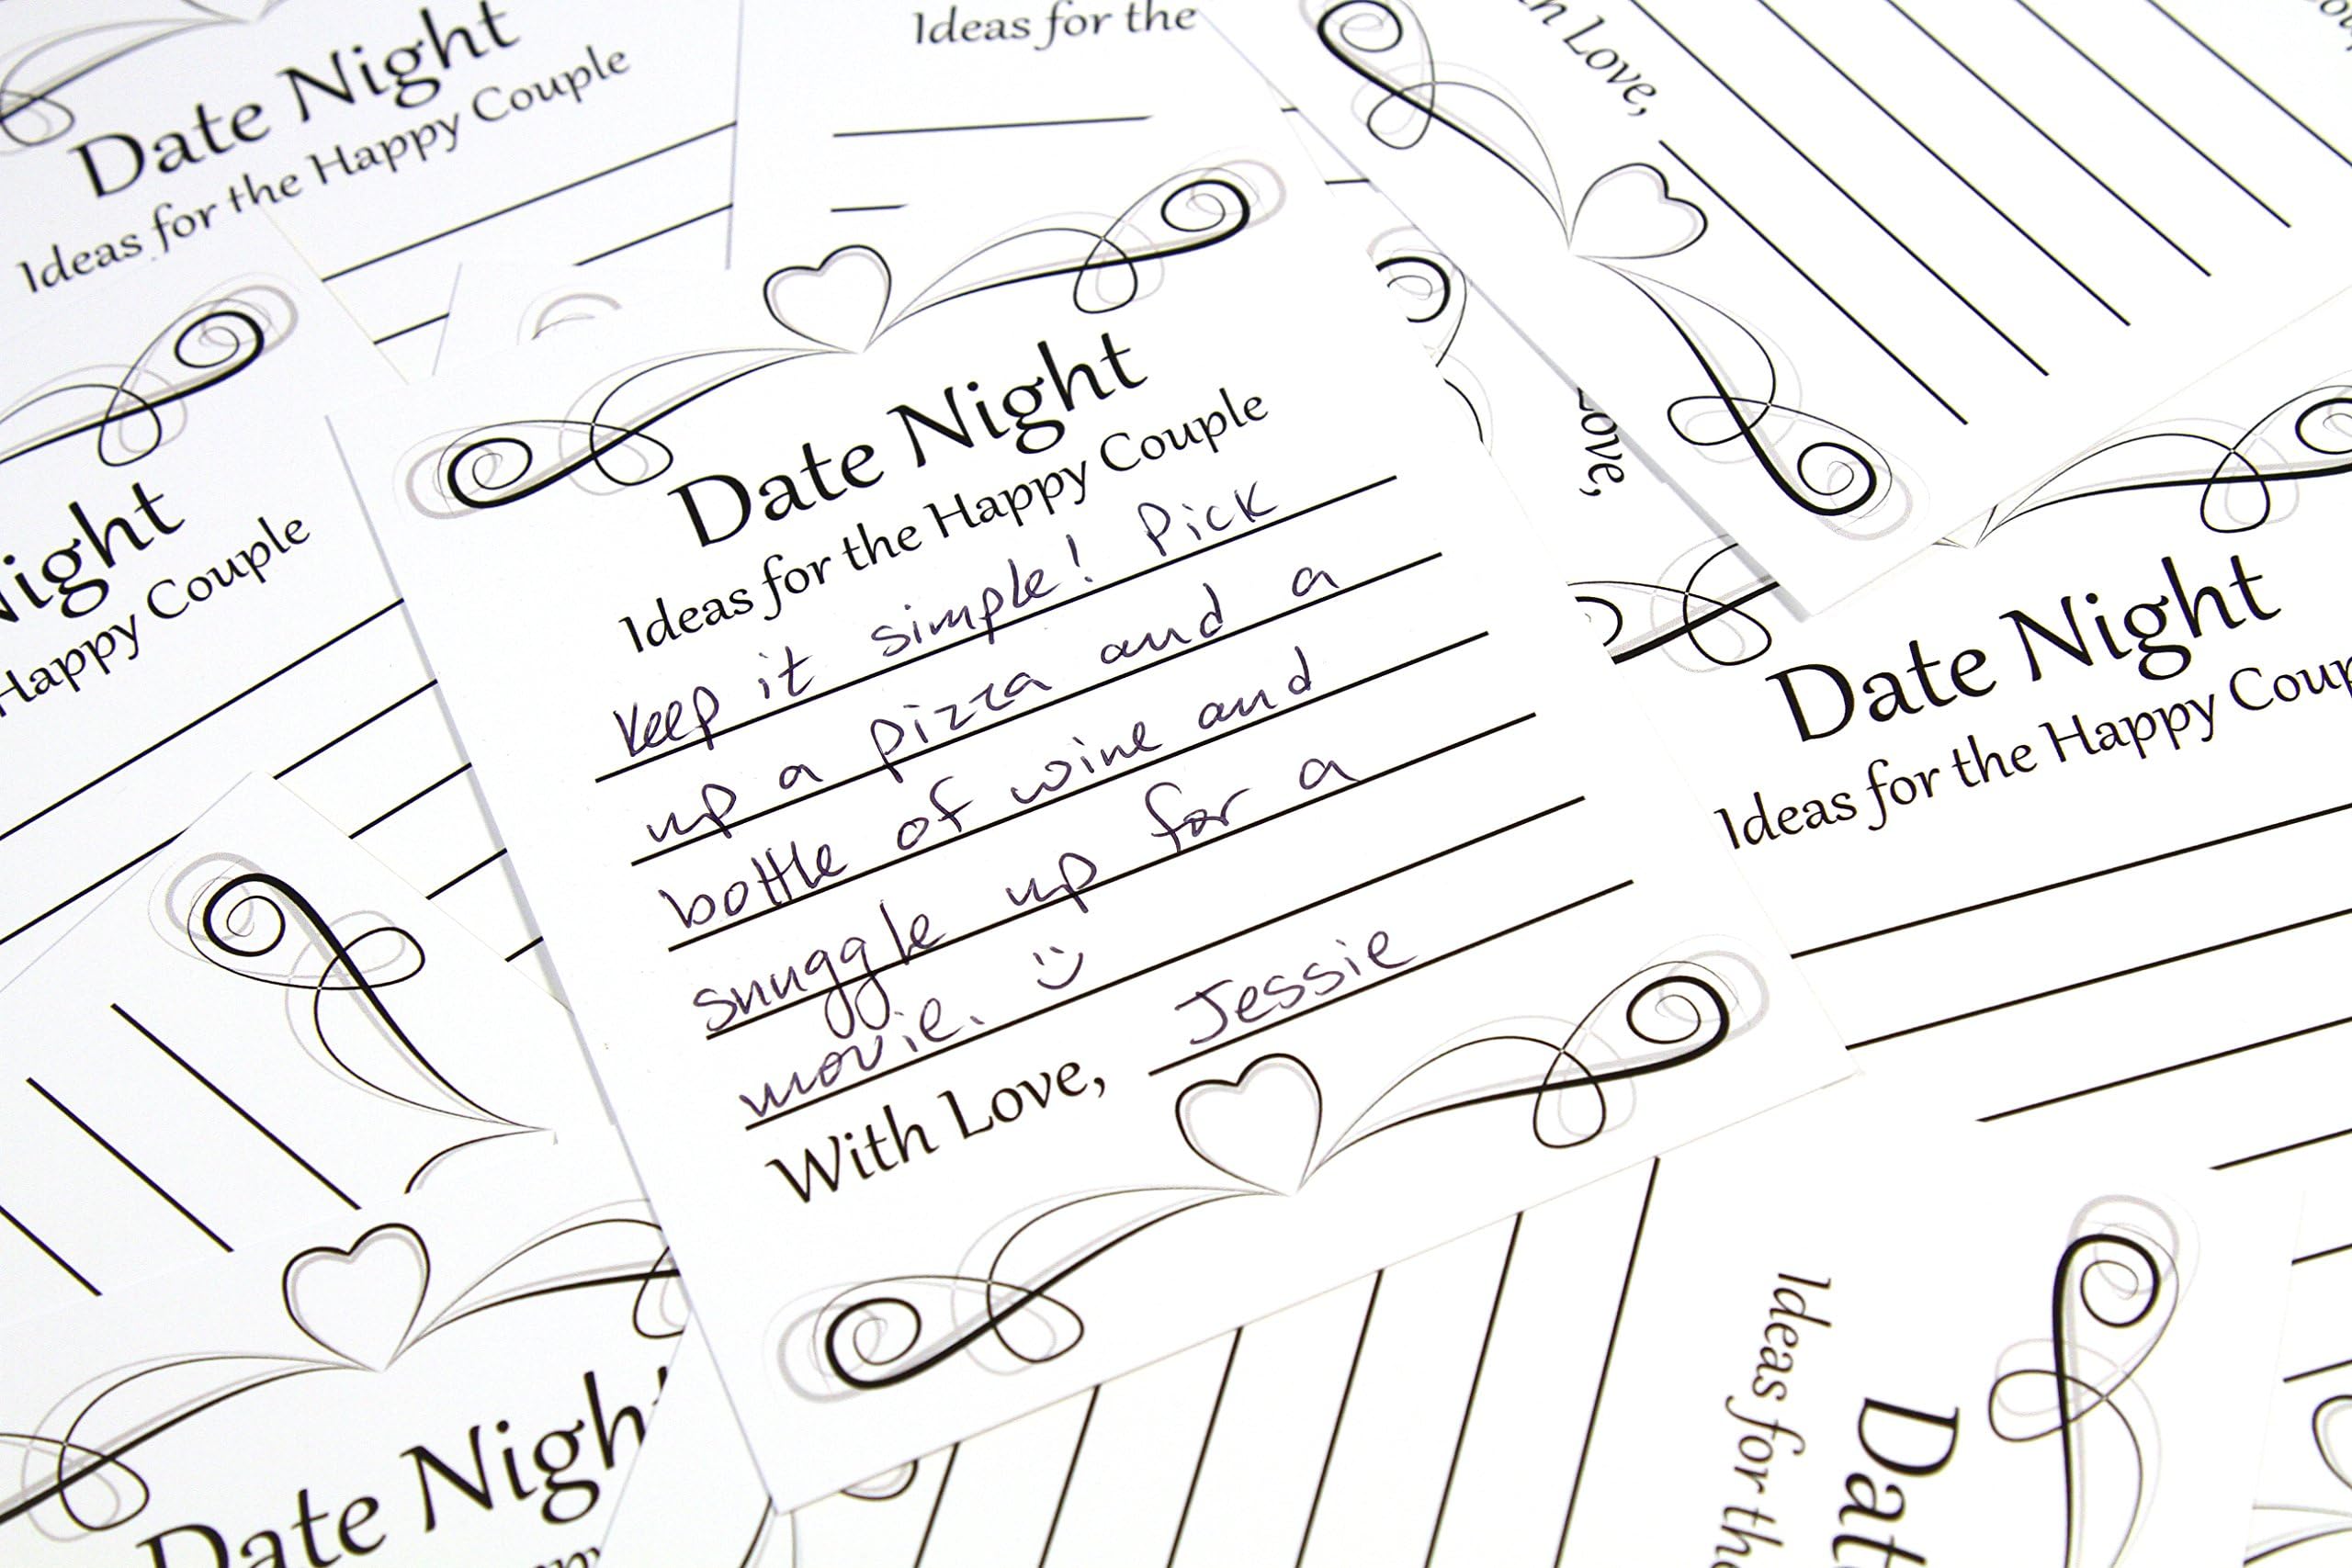 Date Night
Ideas for the Happy Couple
Ideas for the
Love,
Night
Happy Couple
Date Night
Ideas for the Happy Couple
Keep it simple! Pick
up a pizza and a
bottle of wine and
snuggle up for a
movie. :)
With Love, Jessie
Love,
Date Night
Ideas for the Happy
Date
Ideas for the